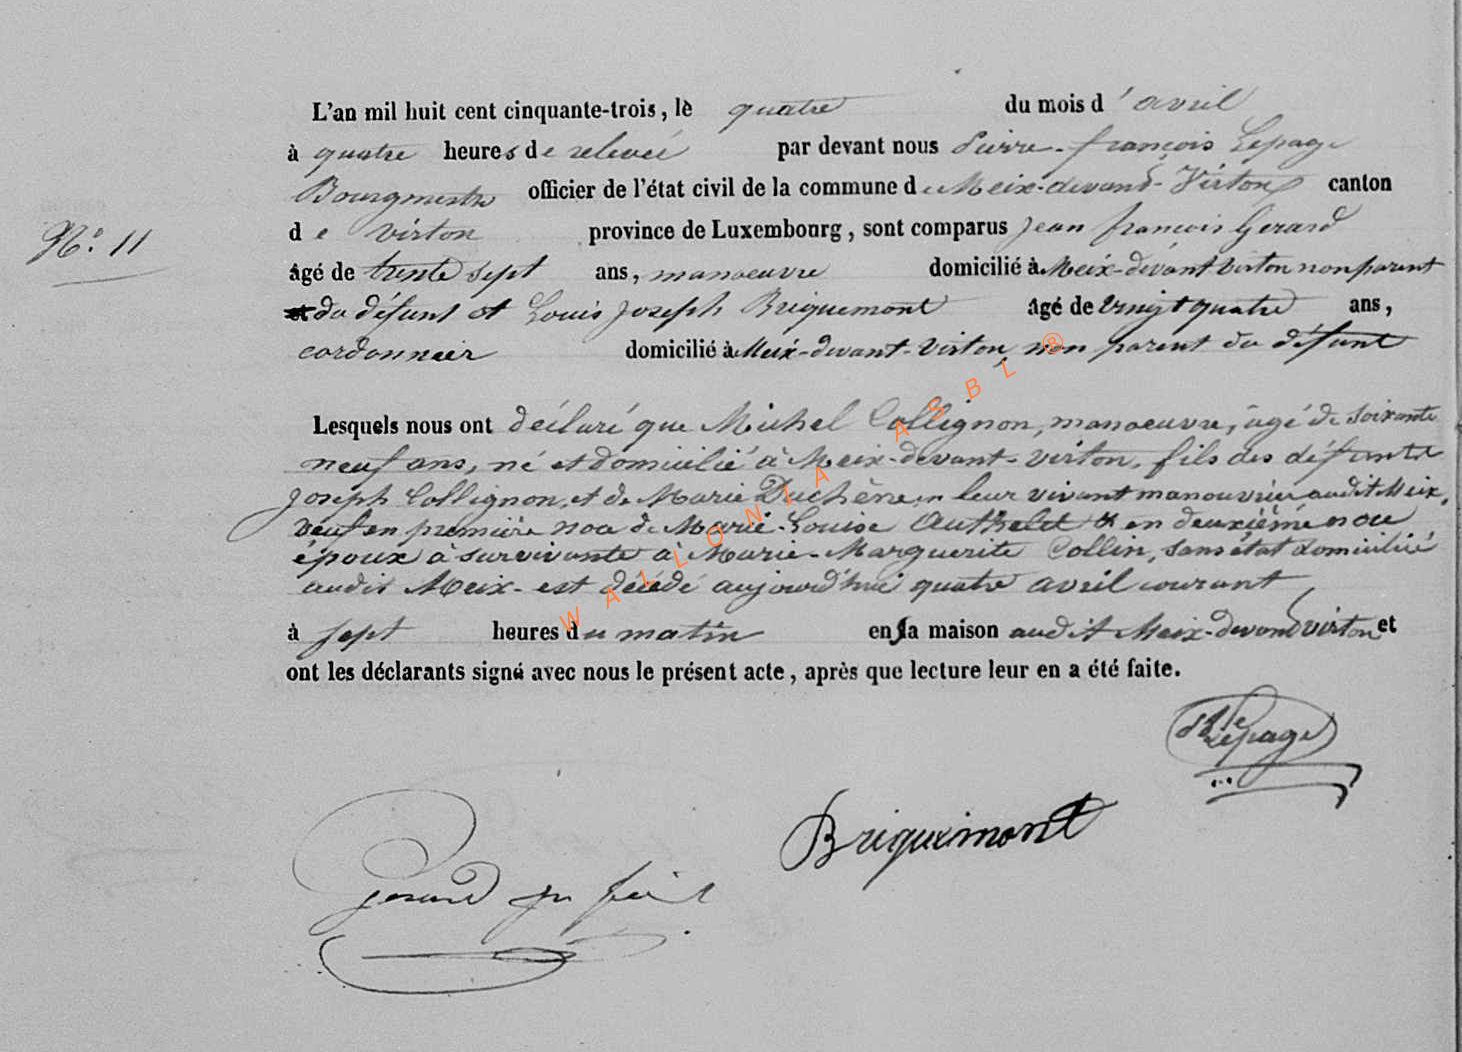 L'an mil huit cent cinquante-trois, le quatre du mois d'avril
à quatre heures de relevée par devant nous Pierre-françois Lepage
Bourgmestre officier de l'état civil de la commune de Meix-devant-Virton canton
de virton province de Luxembourg, sont comparus Jean françois Gerard
N.° 11
âgé de trente sept ans, manoeuvre domicilié à Meix-devant virton non parent
et du défunt et Louis Joseph Briquemont âgé de vingt quatre ans,
cordonnier domicilié à Meix-devant-virton, non parent du défunt
Lesquels nous ont déclaré que Michel Collignon, manoeuvre, âgé de soixante
neuf ans, né et domicilié à Meix-devant-virton, fils des défunts
Joseph Collignon, et de Marie Duchêne, en leur vivant manouvriers audit Meix,
veuf en première noce de Marie-Louise et en deuxième noce
époux à survivante à Marie-Marguerite Collin, sans état domiciliée
audit Meix-est décédé aujourd'hui quatre avril courant
à sept heures du matin en sa maison audit Meix-devant virton et
ont les déclarants signé avec nous le présent acte, après que lecture leur en a été faite.
Lepage
Briquemont
Gerard
WALLONIA ASBL ®